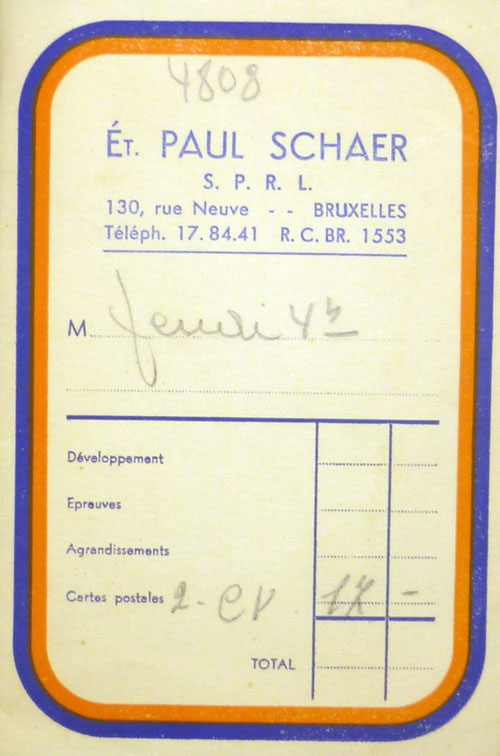 4808
ÉT. PAUL SCHAER
S. P. R. L.
130, rue Neuve - - BRUXELLES
Téléph. 17.84.41 R.C. BR. 1553
M. Jeudi 4h
Développement
Epreuves
Agrandissements
Cartes postales 2 - CP 17 -
TOTAL